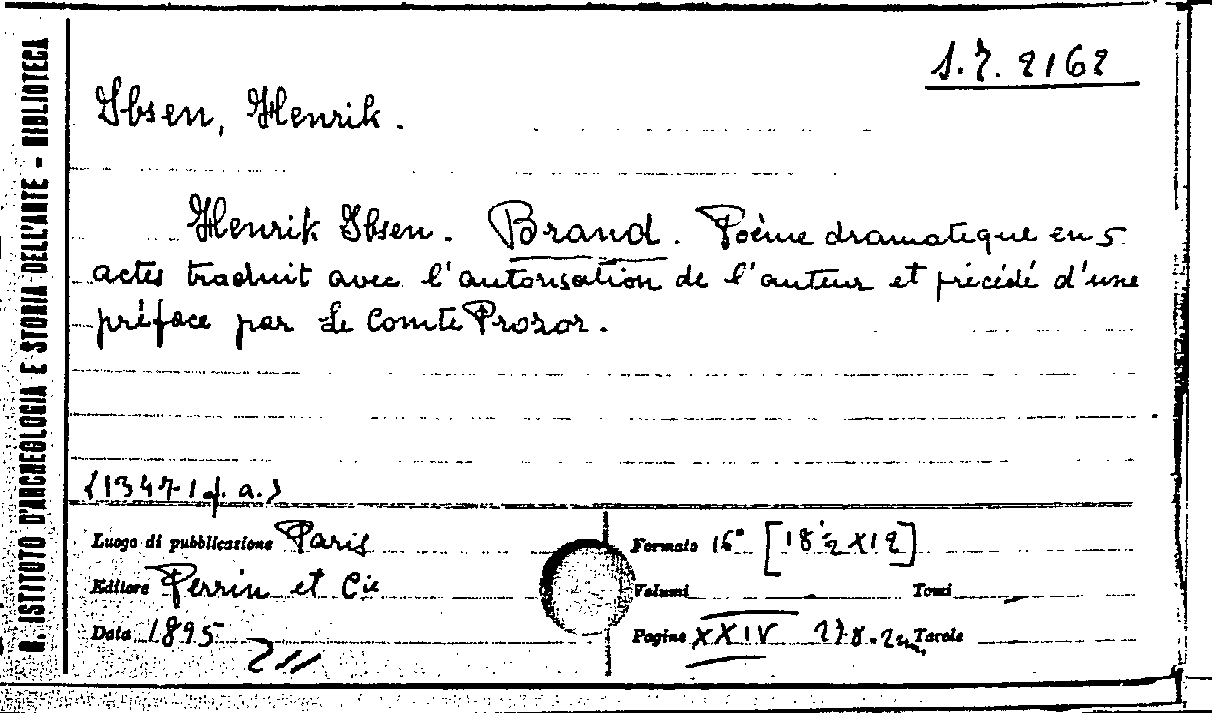 R. ISTITUTO D'ARCHEOLOGIA E STORIA DELL'ARTE - BIBLIOTECA
Ibsen, Henrik.
Henrik Ibsen. Brand. Poème dramatique en 5
actes traduit avec l'autorisation de l'auteur et précédé d'une
préface par Le Comte Prozor.
Luogo di pubblicazione Paris
Editore Perrin et Cie
Data 1895
Formato 16° [18½ x 12]
Volumi Tomi
Pagine XXIV Tavole